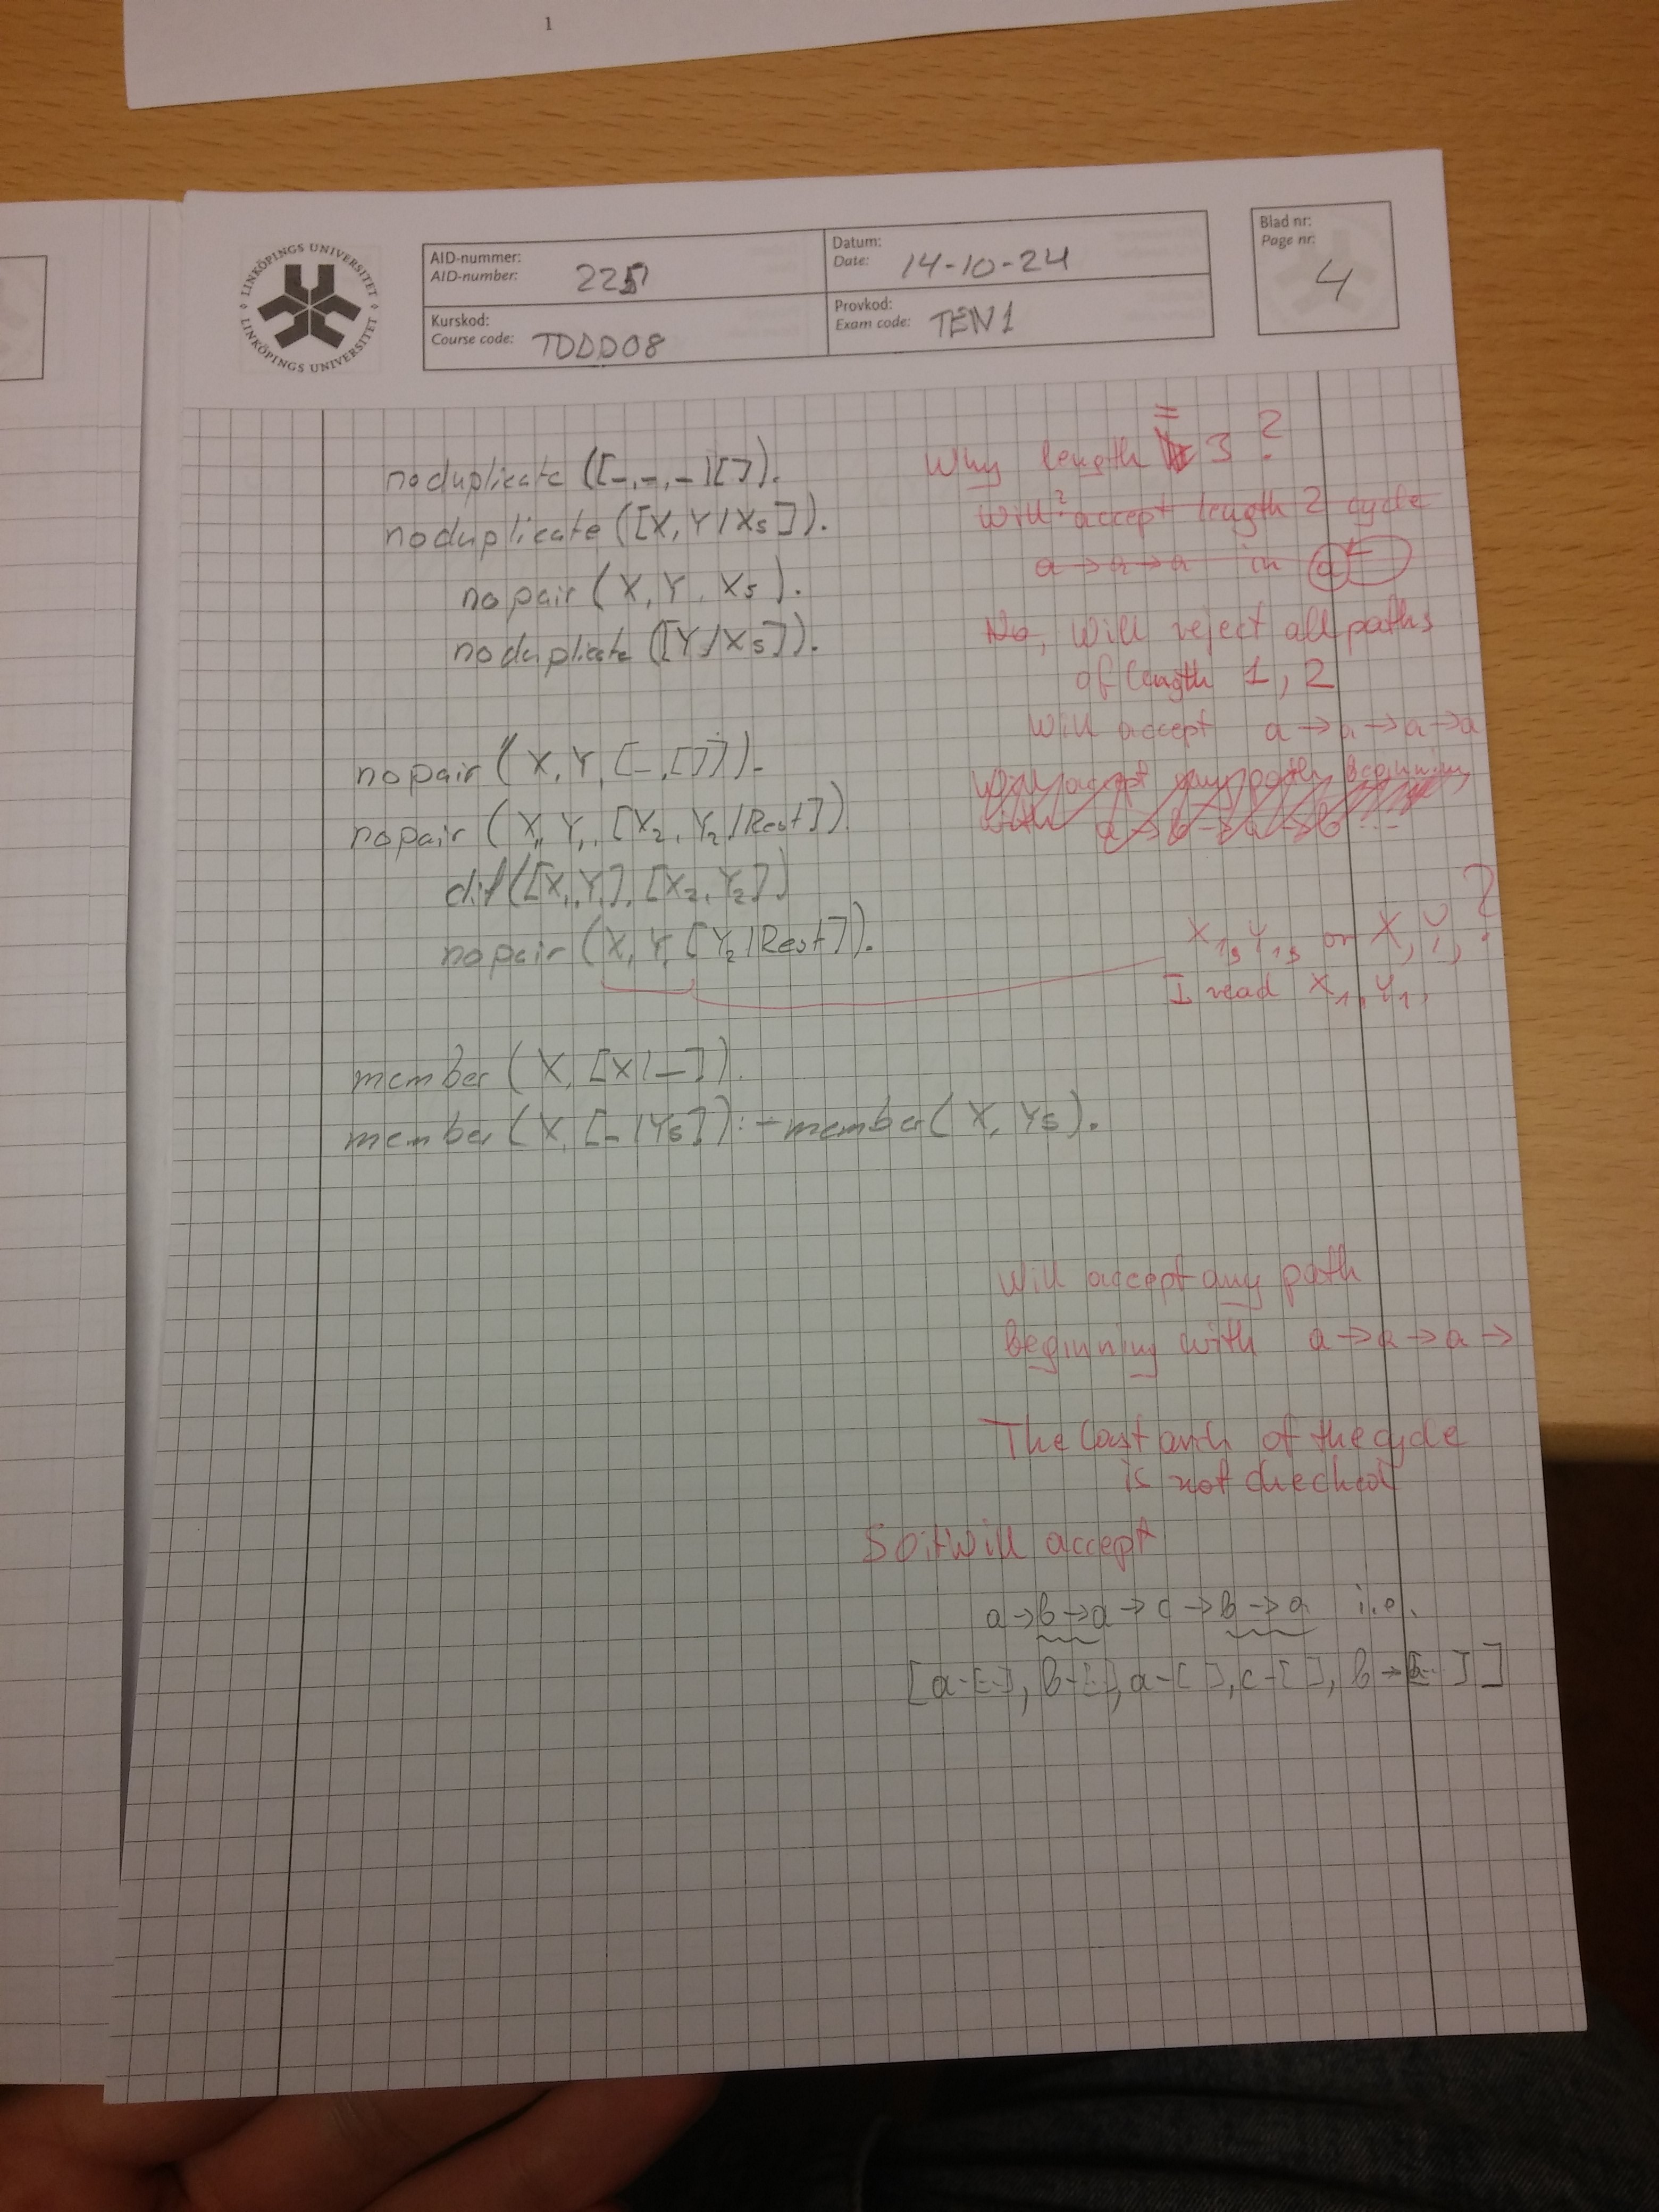 1
LINKÖPINGS UNIVERSITET
LINKÖPINGS UNIVERSITET
AID-nummer:
AID-number:
Datum:
Date: 14-10-24
Kurskod:
Course code: TDDD08
Provkod:
Exam code: TEN1
Blad nr:
Page nr:
4
noduplicate([_,_,_|[]).
noduplicate([X,Y|Xs]).
nopair(X,Y,Xs).
noduplicate([Y|Xs]).
nopair(X,Y,[_,[]]).
nopair(X,Y,[X2,Y2|Rest])
dif([X,Y],[X2,Y2])
nopair(X,Y,[Y2|Rest]).
member(X,[X|_]).
member(X,[_|Ys]):-member(X,Ys).
Why length = 3?
Will? accept length 2 cycle
a→a→a in a
No, Will reject all paths
of length 1, 2
Will accept a→a→a→a
Will accept any path beginning
with a→b→a→b ...
X1, Y1, or X, Y, ?
I read X1, Y1,
Will accept any path
beginning with a→a→a→
The last arch of the cycle
is not checked
So it will accept
a→b→a→c→b→a i.e.